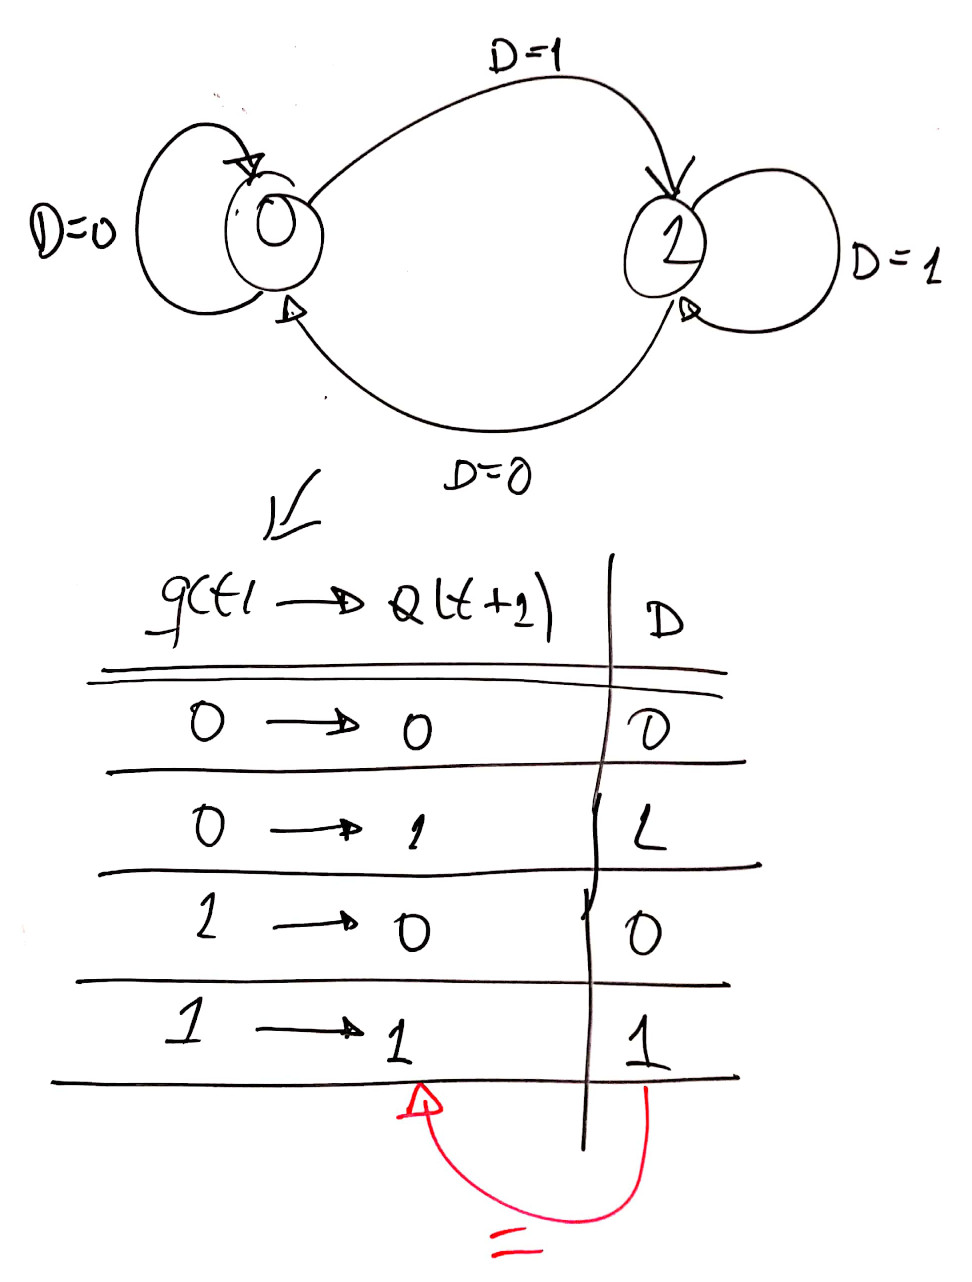 D=1
D=0
0
1
D=1
D=0
q(t) → Q(t+1) D
0 → 0 0
0 → 1 1
1 → 0 0
1 → 1 1
=